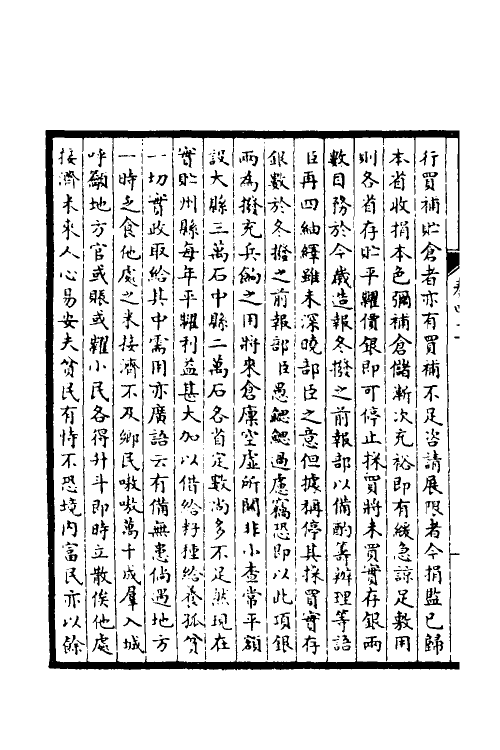 行買補貯倉者亦有買補不足咨請展限者今捐監已歸
本省收捐本色彌補倉儲漸次充裕即有緩急諒足敷用
則各省存貯平糶價銀即可停止採買將未買實存銀兩
數目務於今歲造報冬撥之前報部以備酌籌辦理等語
臣再四紬繹雖未深曉部臣之意但據稱停其採買實存
銀數於冬撥之前報部臣愚鰓鰓過慮竊恐即以此項銀
兩為撥充兵餉之用將來倉廩空虛所關非小查常平額
設大縣三萬石中縣二萬石各省定數尚多不足然現在
實貯州縣每年平糶利益甚大加以借給籽種給養孤貧
一切實政取給其中需用亦廣語云有備無患倘遇地方
一時乏食他處之米接濟不及鄉民嗷嗷萬十成羣入城
呼籲地方官或賑或糶小民各得升斗即時立散俟他處
接濟米來人心易安夫貧民有恃不恐境內富民亦以餘
卷四二